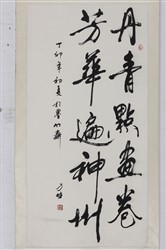 丹青點畫卷
芳華遍神州
丁卯年初夏於